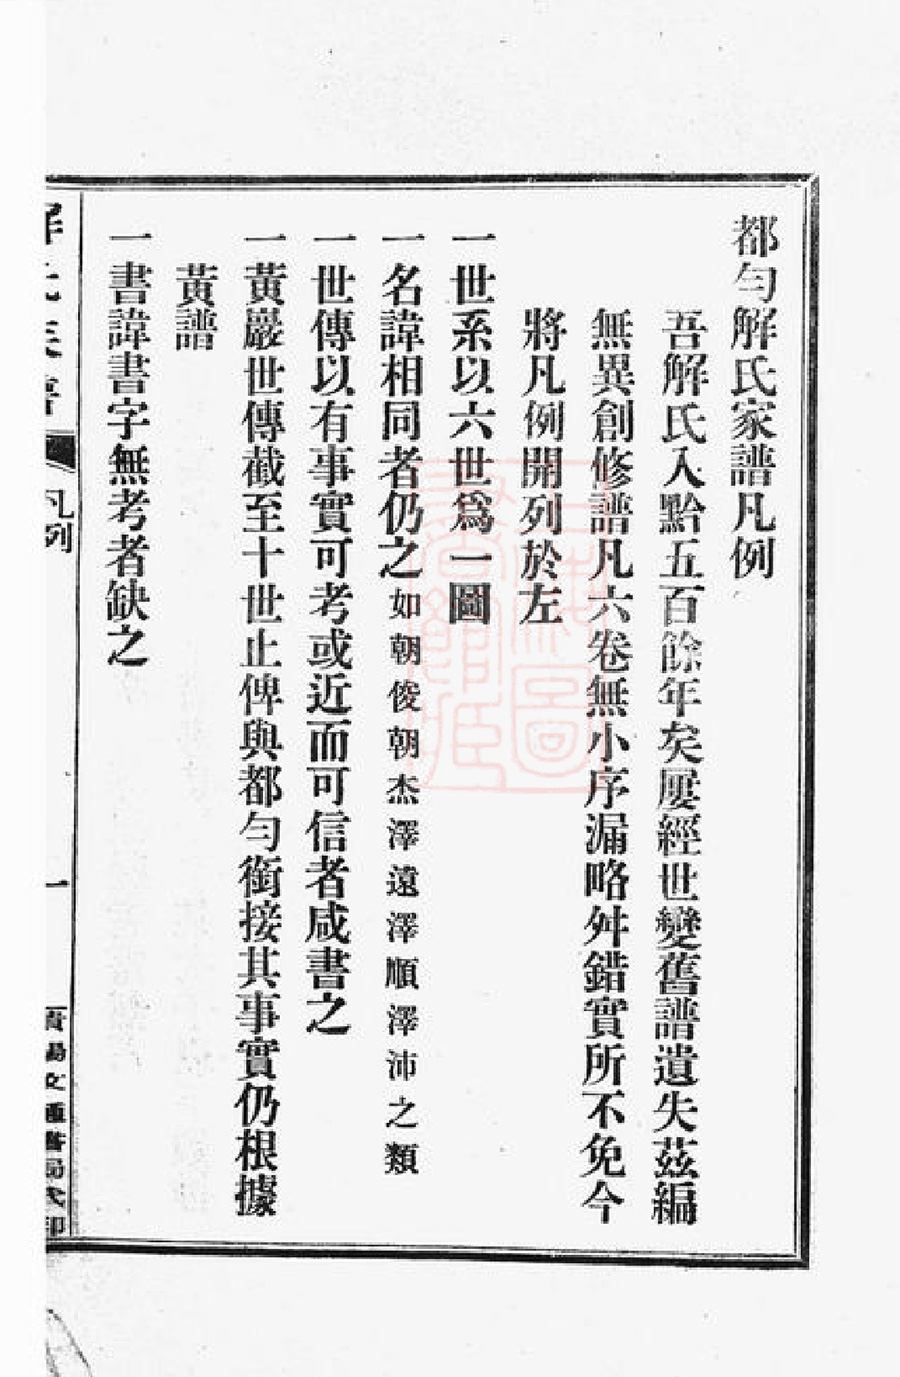 都勻解氏家譜凡例
吾解氏入黔五百餘年矣屢經世變舊譜遺失茲編
無異創修譜凡六卷無小序漏略舛錯實所不免今
將凡例開列於左
一世系以六世為一圖
一名諱相同者仍之如朝俊朝杰澤遠澤順澤沛之類
一世傳以有事實可考或近而可信者咸書之
一黃巖世傳截至十世止俾與都勻銜接其事實仍根據
黃譜
一書諱書字無考者缺之
解氏家譜 凡例 一 貴陽文通書局代印